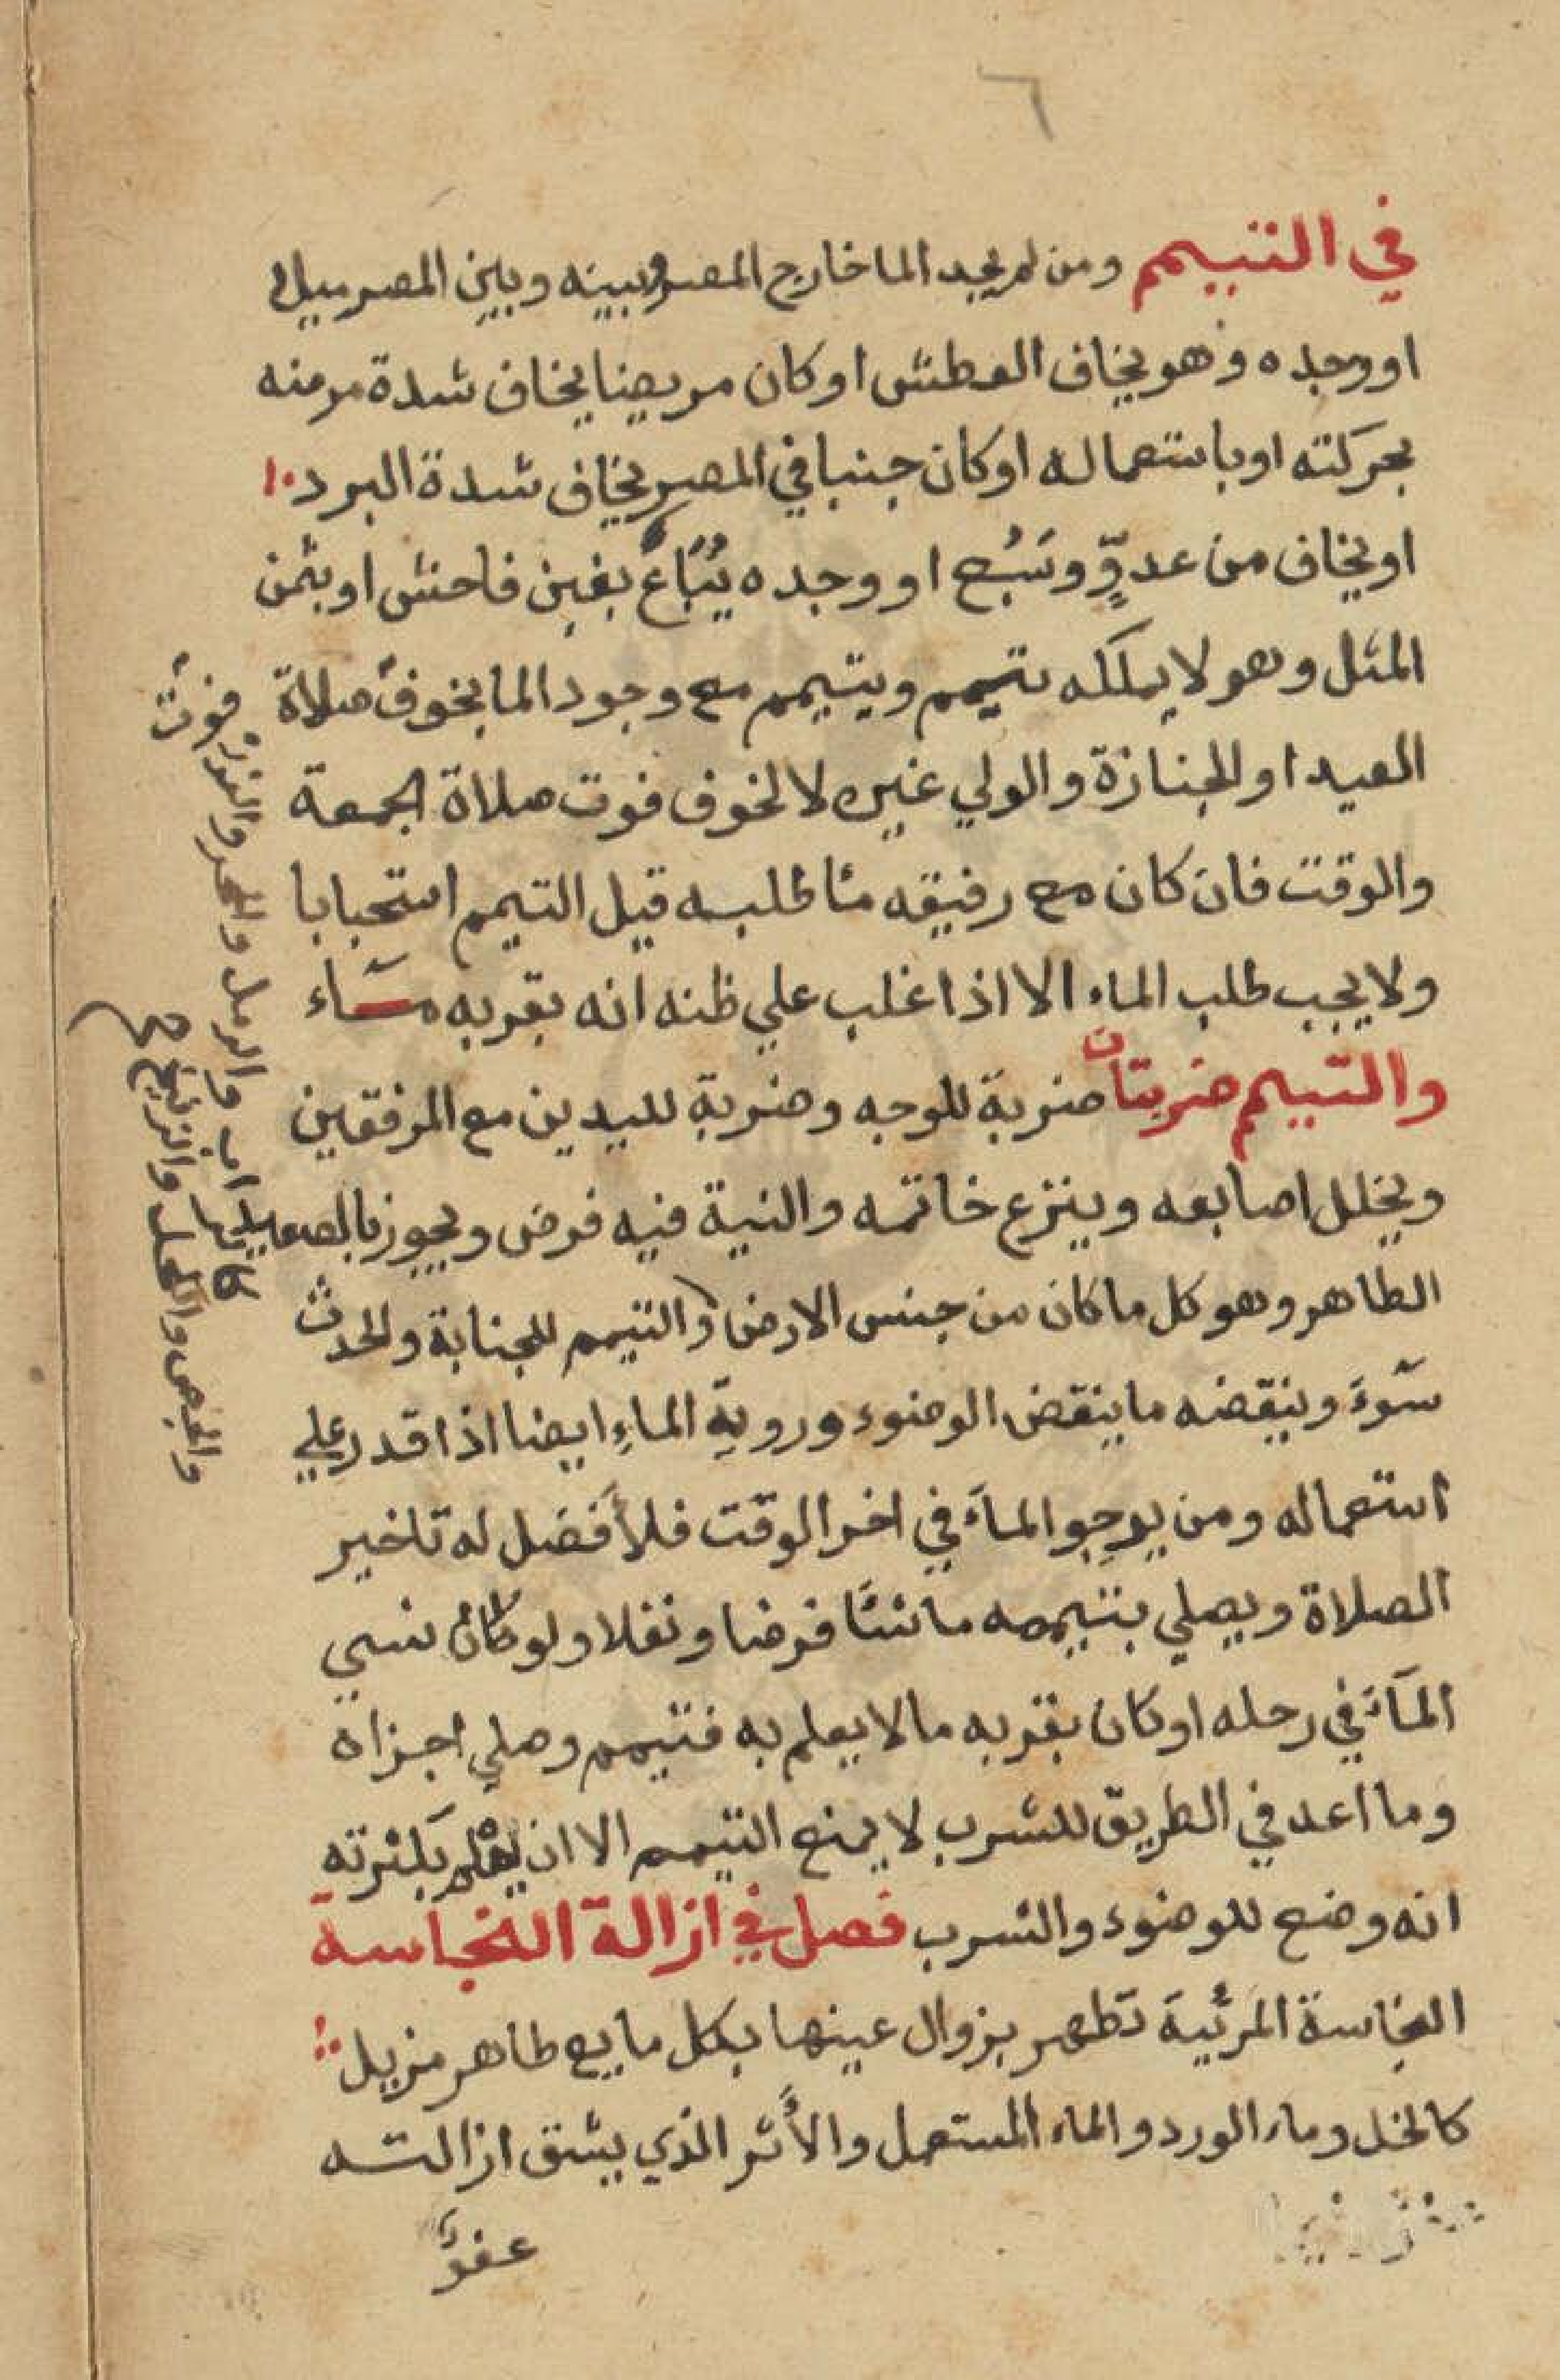 ٦
في التيمم ومن لم يجد الما خارج المصر وبينه وبين المصر ميل
او وجده وهو يخاف العطش او كان مريضا يخاف شدة مرضه
بحركته او باستعماله او كان جنبا في المصر يخاف شدة البرد
او يخاف من عدوٍّ وسَبُع او وجده يُبَاعُ بغبن فاحش او بثمن
المثل وهو لا يملكه تيمم ويتيمم مع وجود الما بخوف صلاة
فوت
العيد او الجنازة والولي غيره لا لخوف فوت صلاة الجمعة
والوقت فان كان مع رفيقه مئا طلبه قبل التيمم استحبابا
ولا يجب طلب الماء الا اذا غلب علي ظنه انه بقربه مآء
والتيمم ضربتان ضربة للوجه وضربة لليدين مع المرفقين
ويخلل اصابعه وينزع خاتمه والنية فيه فرض ويجوز بالصعيد
الطاهر وهو كل ما كان من جنس الارض والتيمم للجنابة والحدث
كالتراب والرمل والحجر والنورة
والجص والكحل والزرنيخ صح
سَوءَ وينقضه ما ينقض الوضوء وروية الماءِ ايضا اذا قدر علي
استعماله ومن يرجو المآء في اخر الوقت فلأفضل له تاخير
الصلاة ويصلي بتيممه ما شئا فرضا ونفلا ولو كان نسي
المآء في رحله او كان بقربه ما لا يعلم به فتيمم وصلي اجزاه
وما اعد في الطريق للشرب لا يمنع التيمم الا ان يعلم بكثرته
انه وضع للوضوء والشرب فصل في ازالة النجاسة
النجاسة المرئية تطهر بزوال عينها بكل مايع طاهر مزيل
كالخل وماء الورد والماء المستعمل والأثر الذي يشق ازالته
عفوٌ